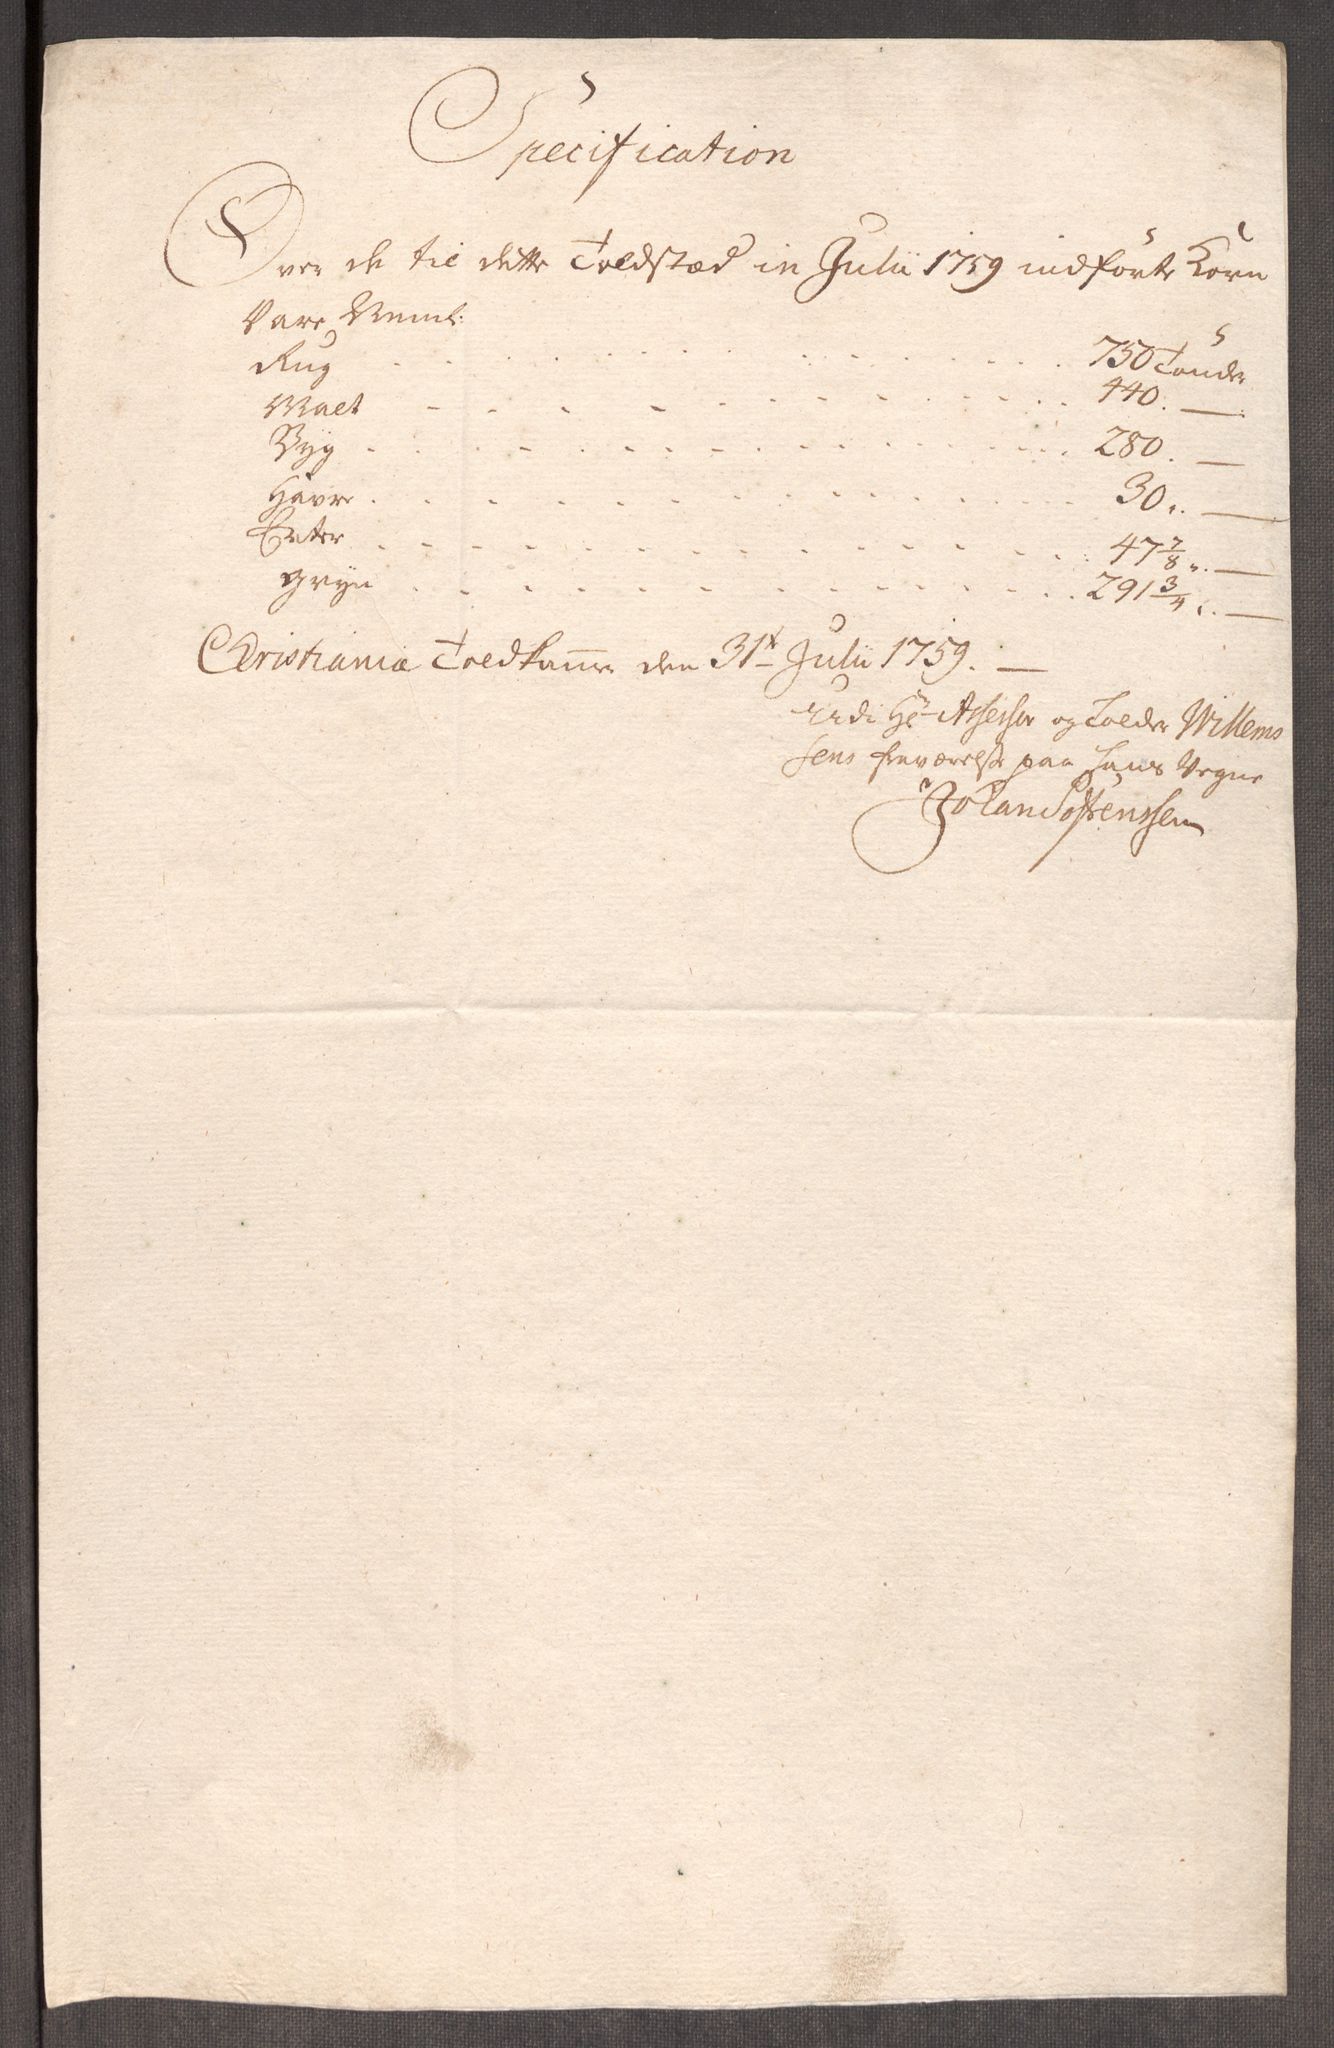 Specification
Over de til dette Toldstæd in Julii 1759 indförte Korn
Vare Neml:
Rug 750 Tønder
Malt 440. —
Byg 280. —
Havre 30 „. —
Erter 47 7/8 „. —
Gryn 291 3/4 „. —
Christiania Toldkam̅er den 31t Julii 1759. —
Udi Hr Assessor og Tolder Willems
sens fraværelse paa hans Vegne